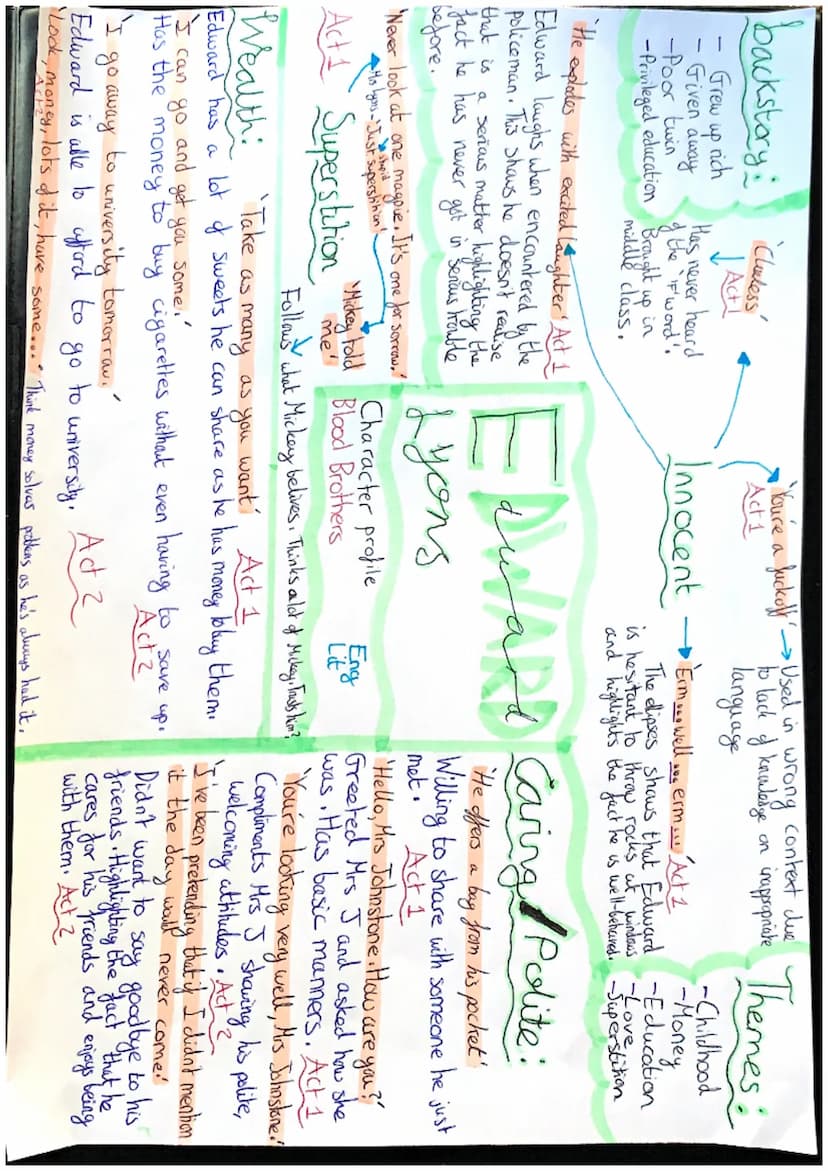 backstory:
- Grew up rich
- Given away
- Poor twin
- Privileged education
'Clueless'
Act 1
Has never heard
of the 'F word'.
Brought up in
middle class.
Innocent
'You're a fuckoff'
Act 1
Used in wrong context due
to lack of knowledge on inappropriate
language
'Erm...well...erm...' Act 1
The elipses shows that Edward
is hesitant to throw rocks at windows
and highlights the fact he is well-behaved.
Themes:
- Childhood
- Money
- Education
- Love
- Superstition
'He explodes with excited laughter' Act 1
Edward laughs when encountered by the
policeman. This shows he doesn't realise
that is a serious matter highlighting the
fact he has never got in serious trouble
before.
EDWARD
Edward
Lyons
Character profile
Blood Brothers
Eng
Lit
Caring/Polite:
'He offers a bag from his pocket'
Willing to share with someone he just
met. Act 1
'Hello, Mrs Johnstone. How are you?'
Greeted Mrs J and asked how she
was. Has basic manners. Act 1
'You're looking very well, Mrs Johnstone.'
Compliments Mrs J showing his polite,
welcoming attitudes. Act 2
'I've been pretending that if I didn't mention
it the day would never come.'
Didn't want to say goodbye to his
friends. Highlighting the fact that he
cares for his friends and enjoys being
with them. Act 2
'Never look at one magpie. It's one for sorrow.'
Act 1
Mrs Lyons - 'Just stupid superstition'
Superstition
'Mickey told
me'
Follows what Mickey belives. Thinks a lot of Mickey, trusts him?
Wealth:
'Take as many as you want' Act 1
Edward has a lot of sweets he can share as he has money to buy them.
'I can go and get you some.'
Has the money to buy cigarettes without even having to save up.
Act 2
'I go away to university tomorrow.'
Edward is able to afford to go to university.
Act 2
'Look, money, lots of it, have some...' Think money solves problems as he's always had it.
Act 2